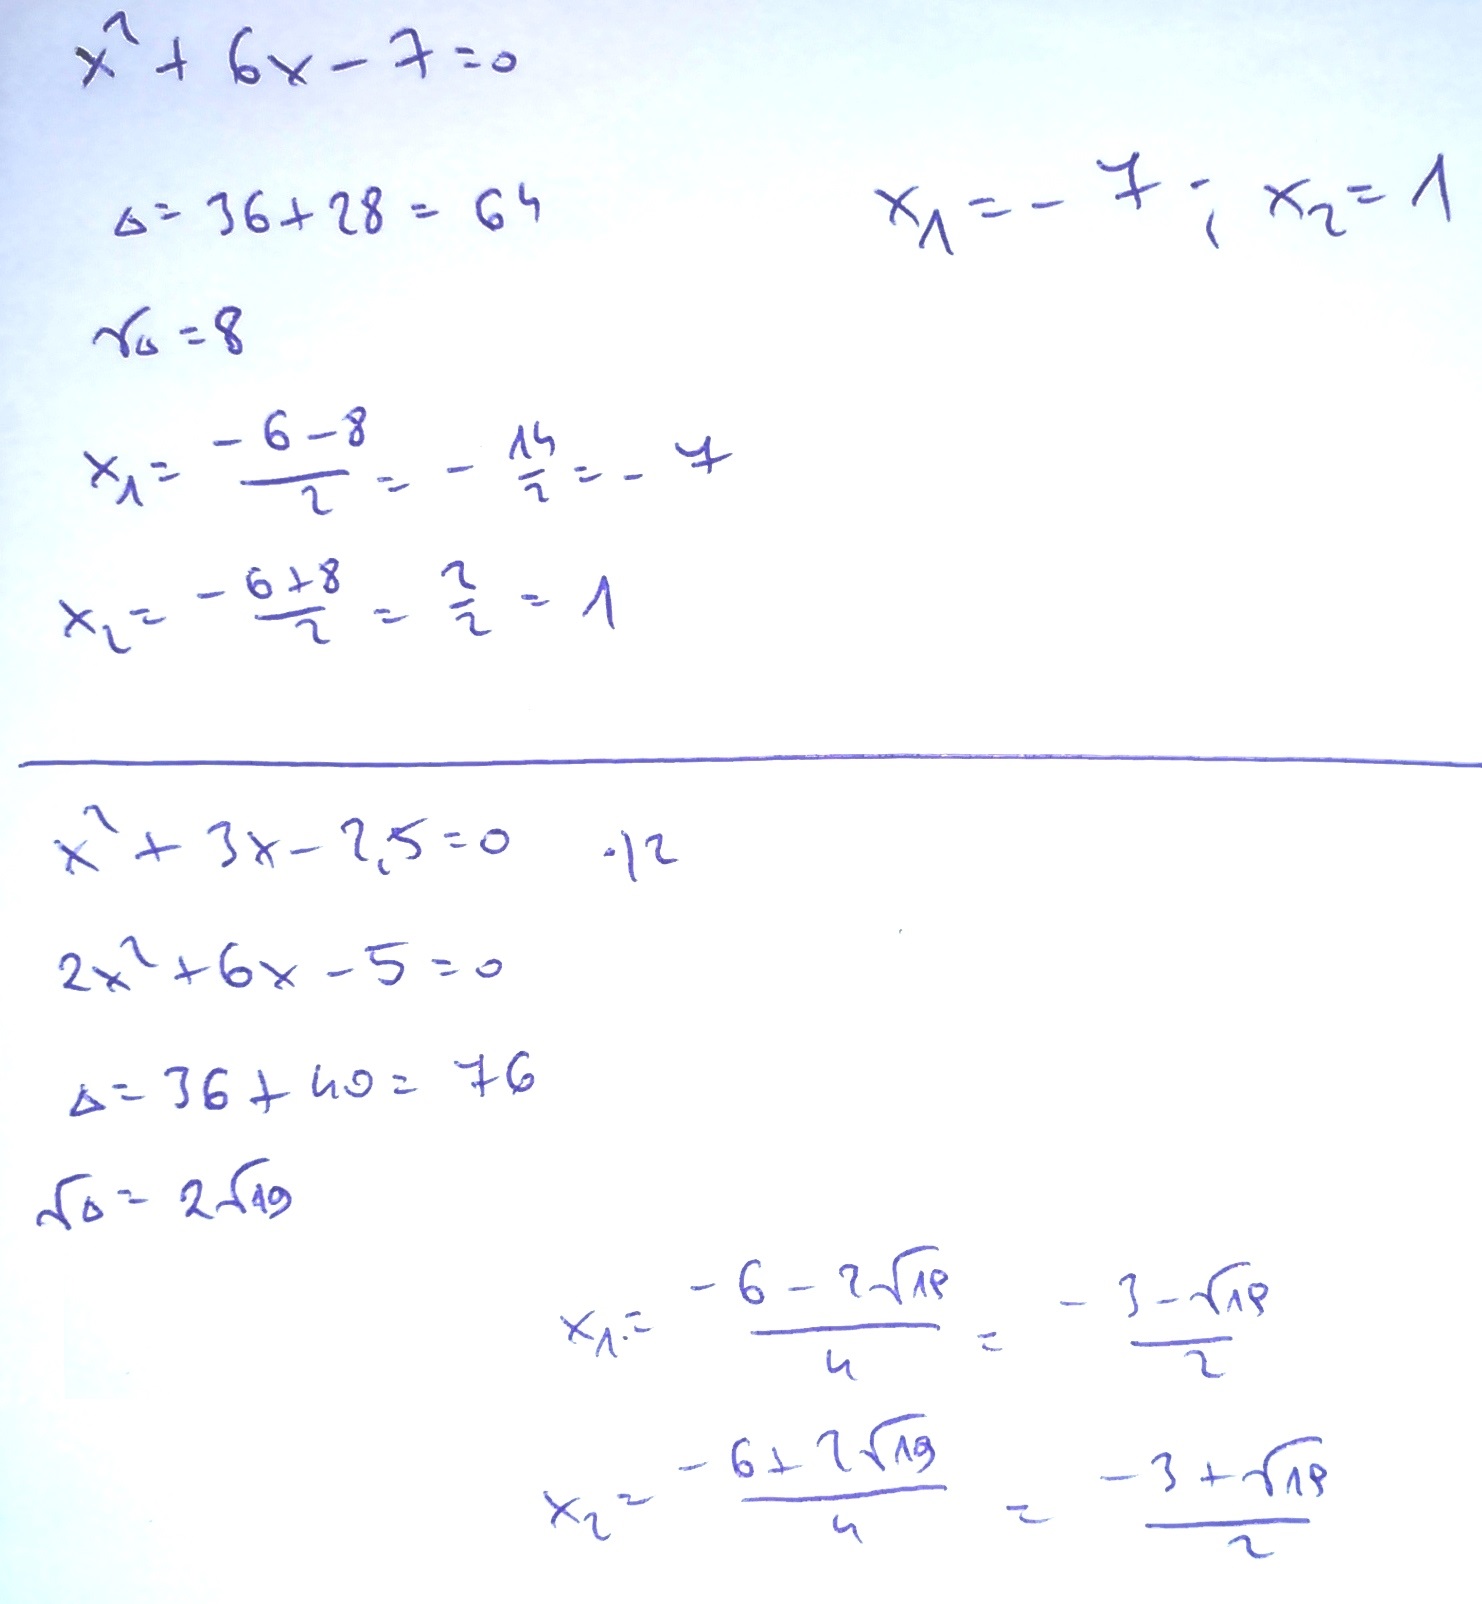 x² + 6x - 7 = 0
Δ = 36 + 28 = 64
x₁ = - 7 ; x₂ = 1
√Δ = 8
x₁ = (-6-8)/2 = - 14/2 = - 7
x₂ = (-6+8)/2 = 2/2 = 1
x² + 3x - 2,5 = 0 ·|2
2x² + 6x - 5 = 0
Δ = 36 + 40 = 76
√Δ = 2√19
x₁ = (-6 - 2√19)/4 = (-3 - √19)/2
x₂ = (-6 + 2√19)/4 = (-3 + √19)/2